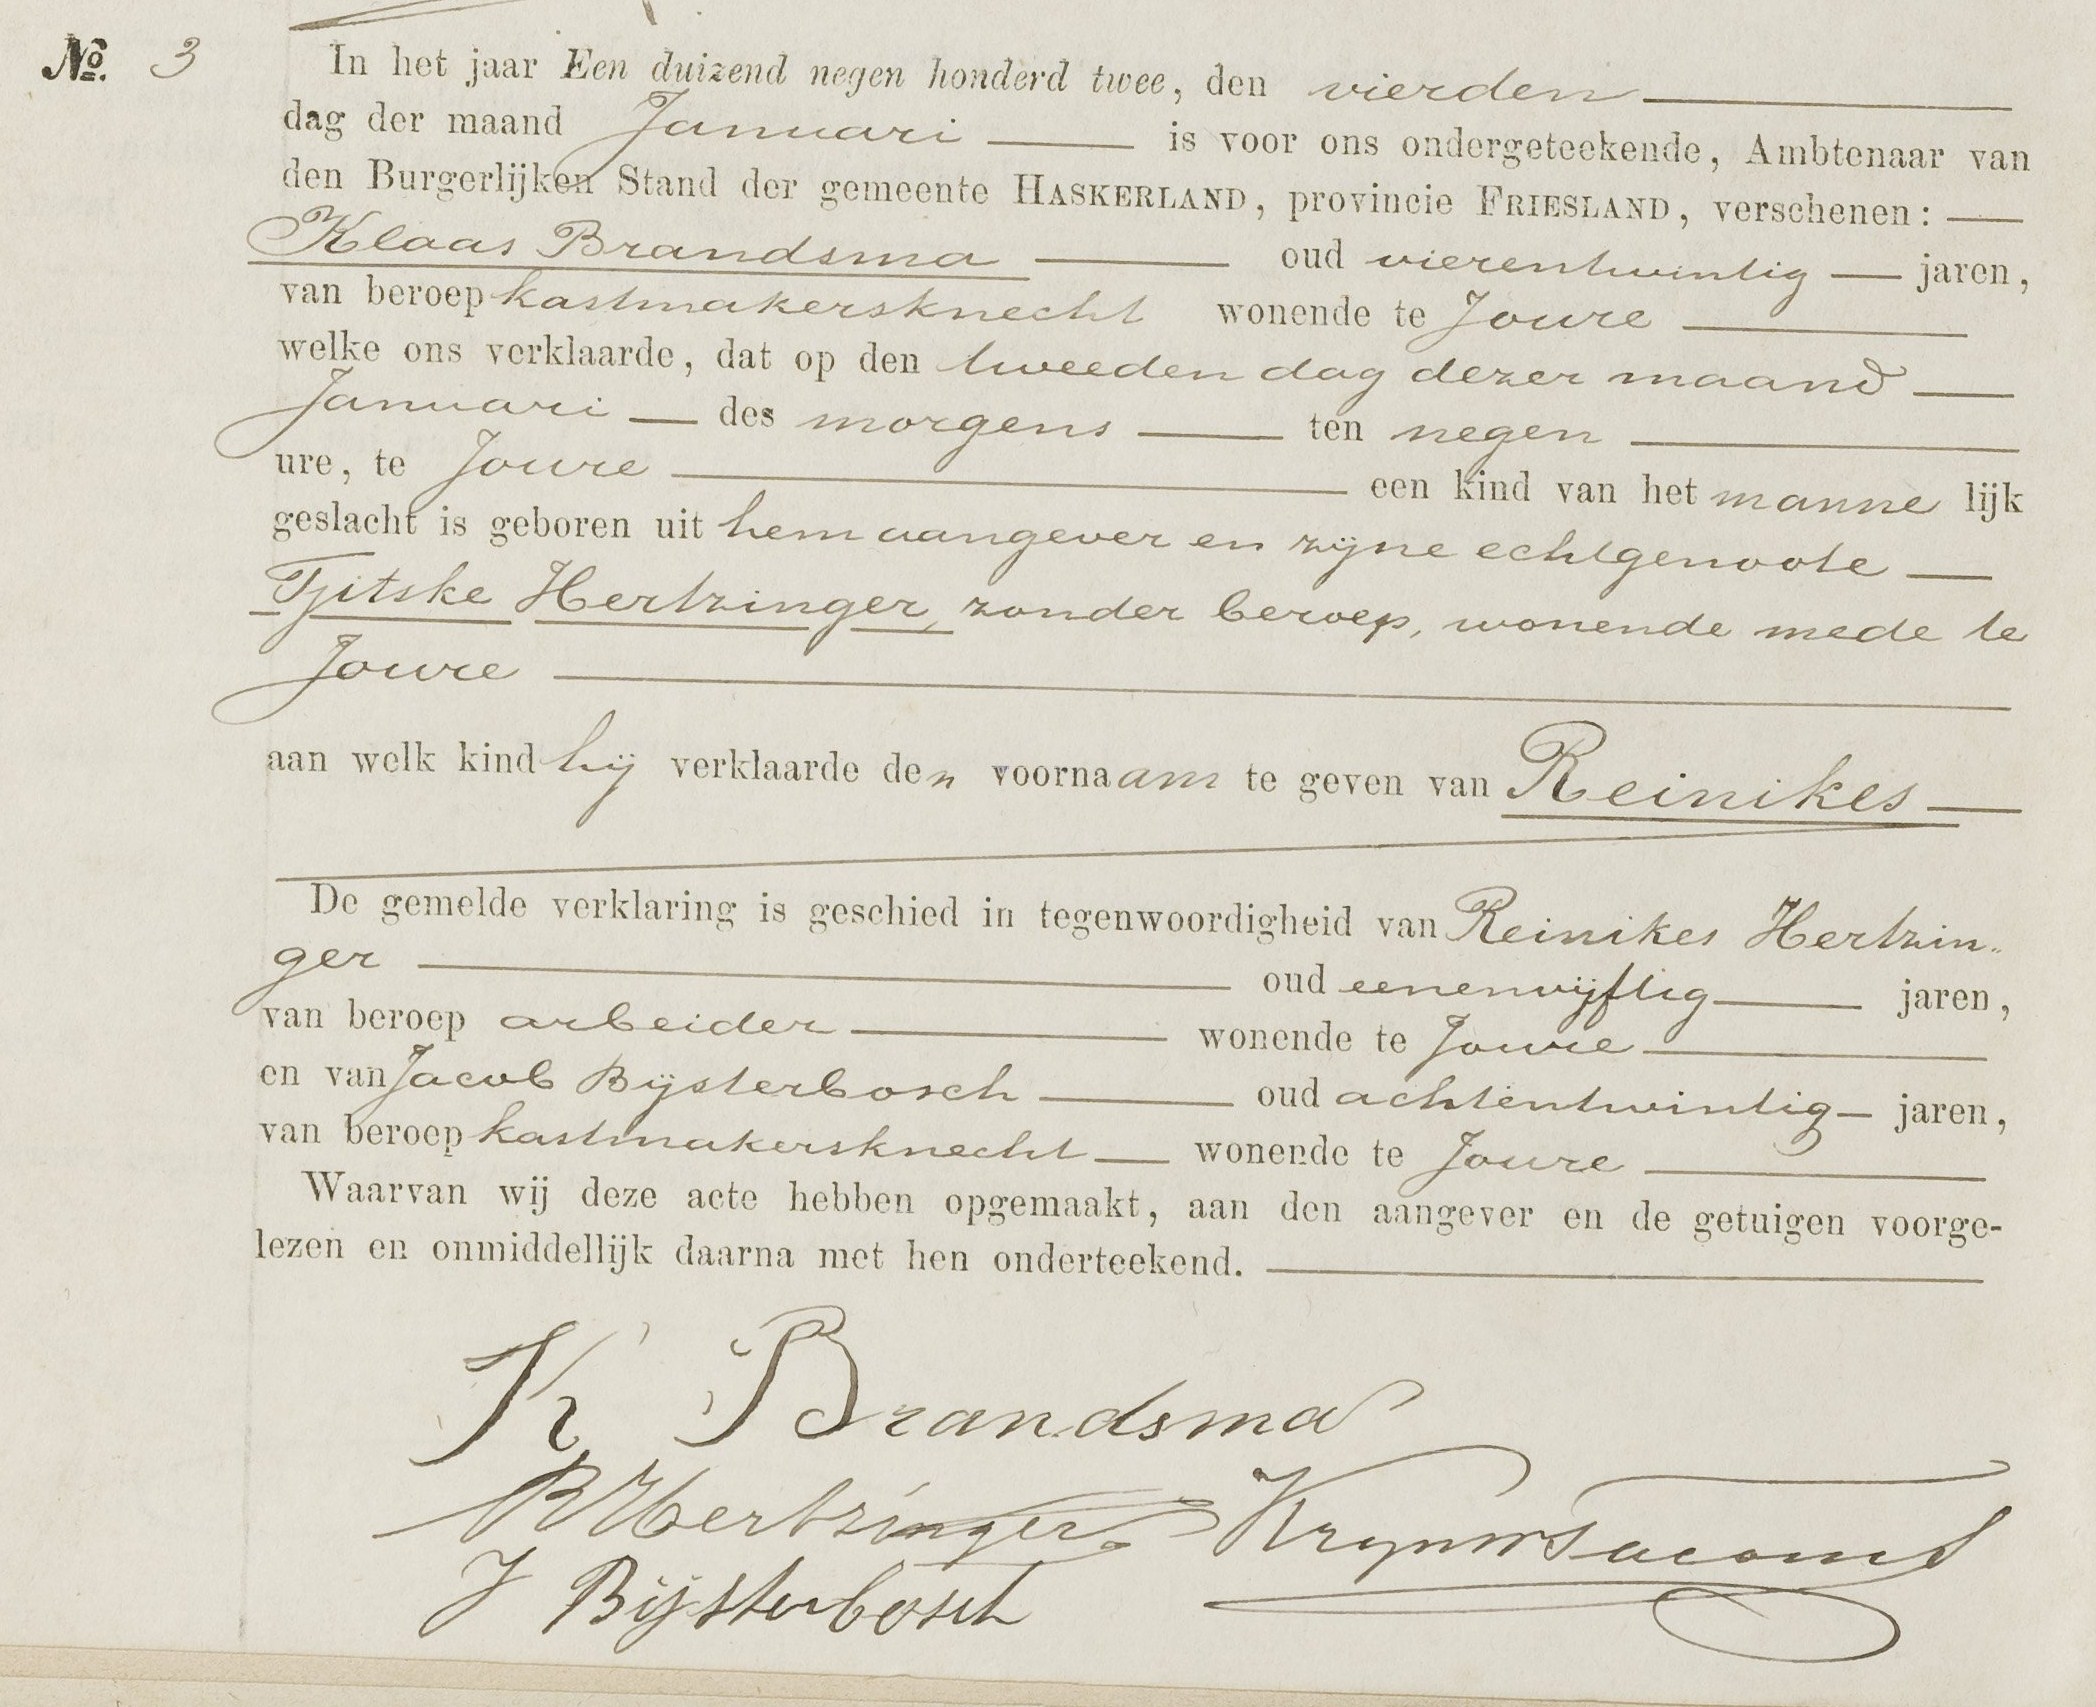 No. 3
In het jaar Een duizend negen honderd twee, den vierden
dag der maand Januari is voor ons ondergeteekende, Ambtenaar van
den Burgerlijken Stand der gemeente HASKERLAND, provincie FRIESLAND, verschenen:
Klaas Brandsma oud vierentwintig jaren,
van beroep kastmakersknecht wonende te Joure
welke ons verklaarde, dat op den tweeden dag dezer maand
Januari des morgens ten negen
ure, te Joure een kind van het manne lijk
geslacht is geboren uit hem aangever en zijne echtgenoote
Tjitske Hertzinger, zonder beroep, wonende mede te
Joure
aan welk kind hij verklaarde den voornaam te geven van Reinikes
De gemelde verklaring is geschied in tegenwoordigheid van Reinikes Hertzin-
ger oud eenenvijftig jaren,
van beroep arbeider wonende te Joure
en van Jacob Bijsterbosch oud achtentwintig jaren,
van beroep kastmakersknecht wonende te Joure
Waarvan wij deze acte hebben opgemaakt, aan den aangever en de getuigen voorge-
lezen en onmiddellijk daarna met hen onderteekend.
K Brandsma
R Hertzinger
J Bijsterbosch